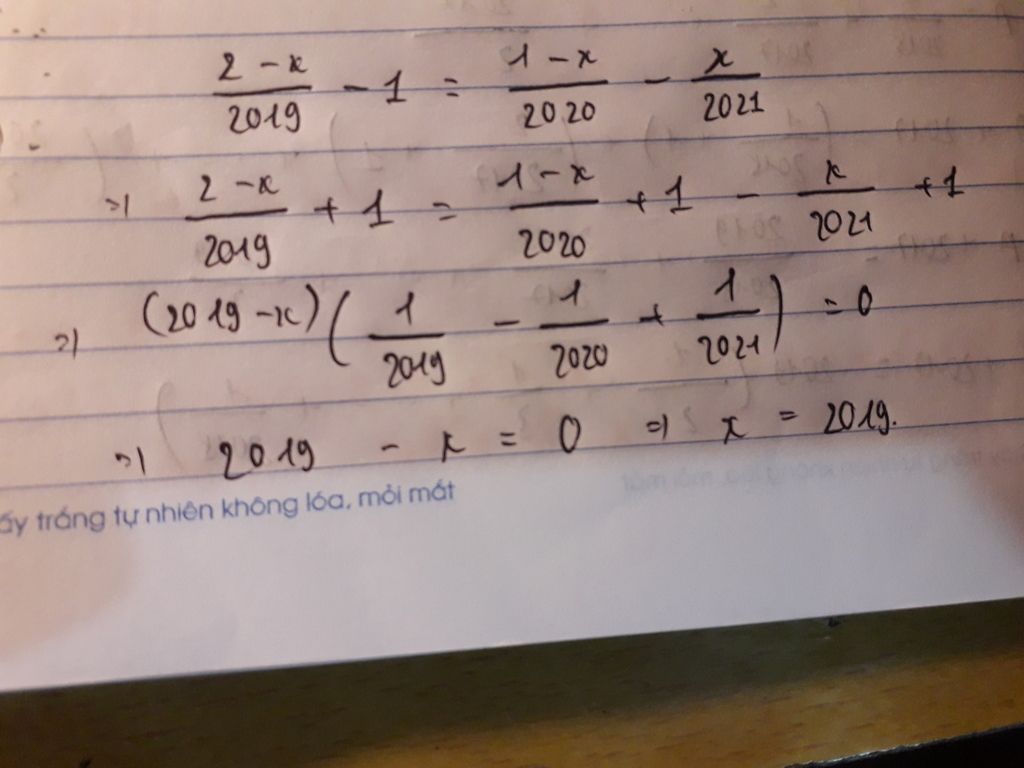 2 - x / 2019 - 1 = 1 - x / 2020 - x / 2021
=> 2 - x / 2019 + 1 = 1 - x / 2020 + 1 - x / 2021 + 1
=> (2019 - x) (1 / 2019 - 1 / 2020 + 1 / 2021) = 0
=> 2019 - x = 0 => x = 2019.
ấy trắng tự nhiên không lóa, mỏi mắt